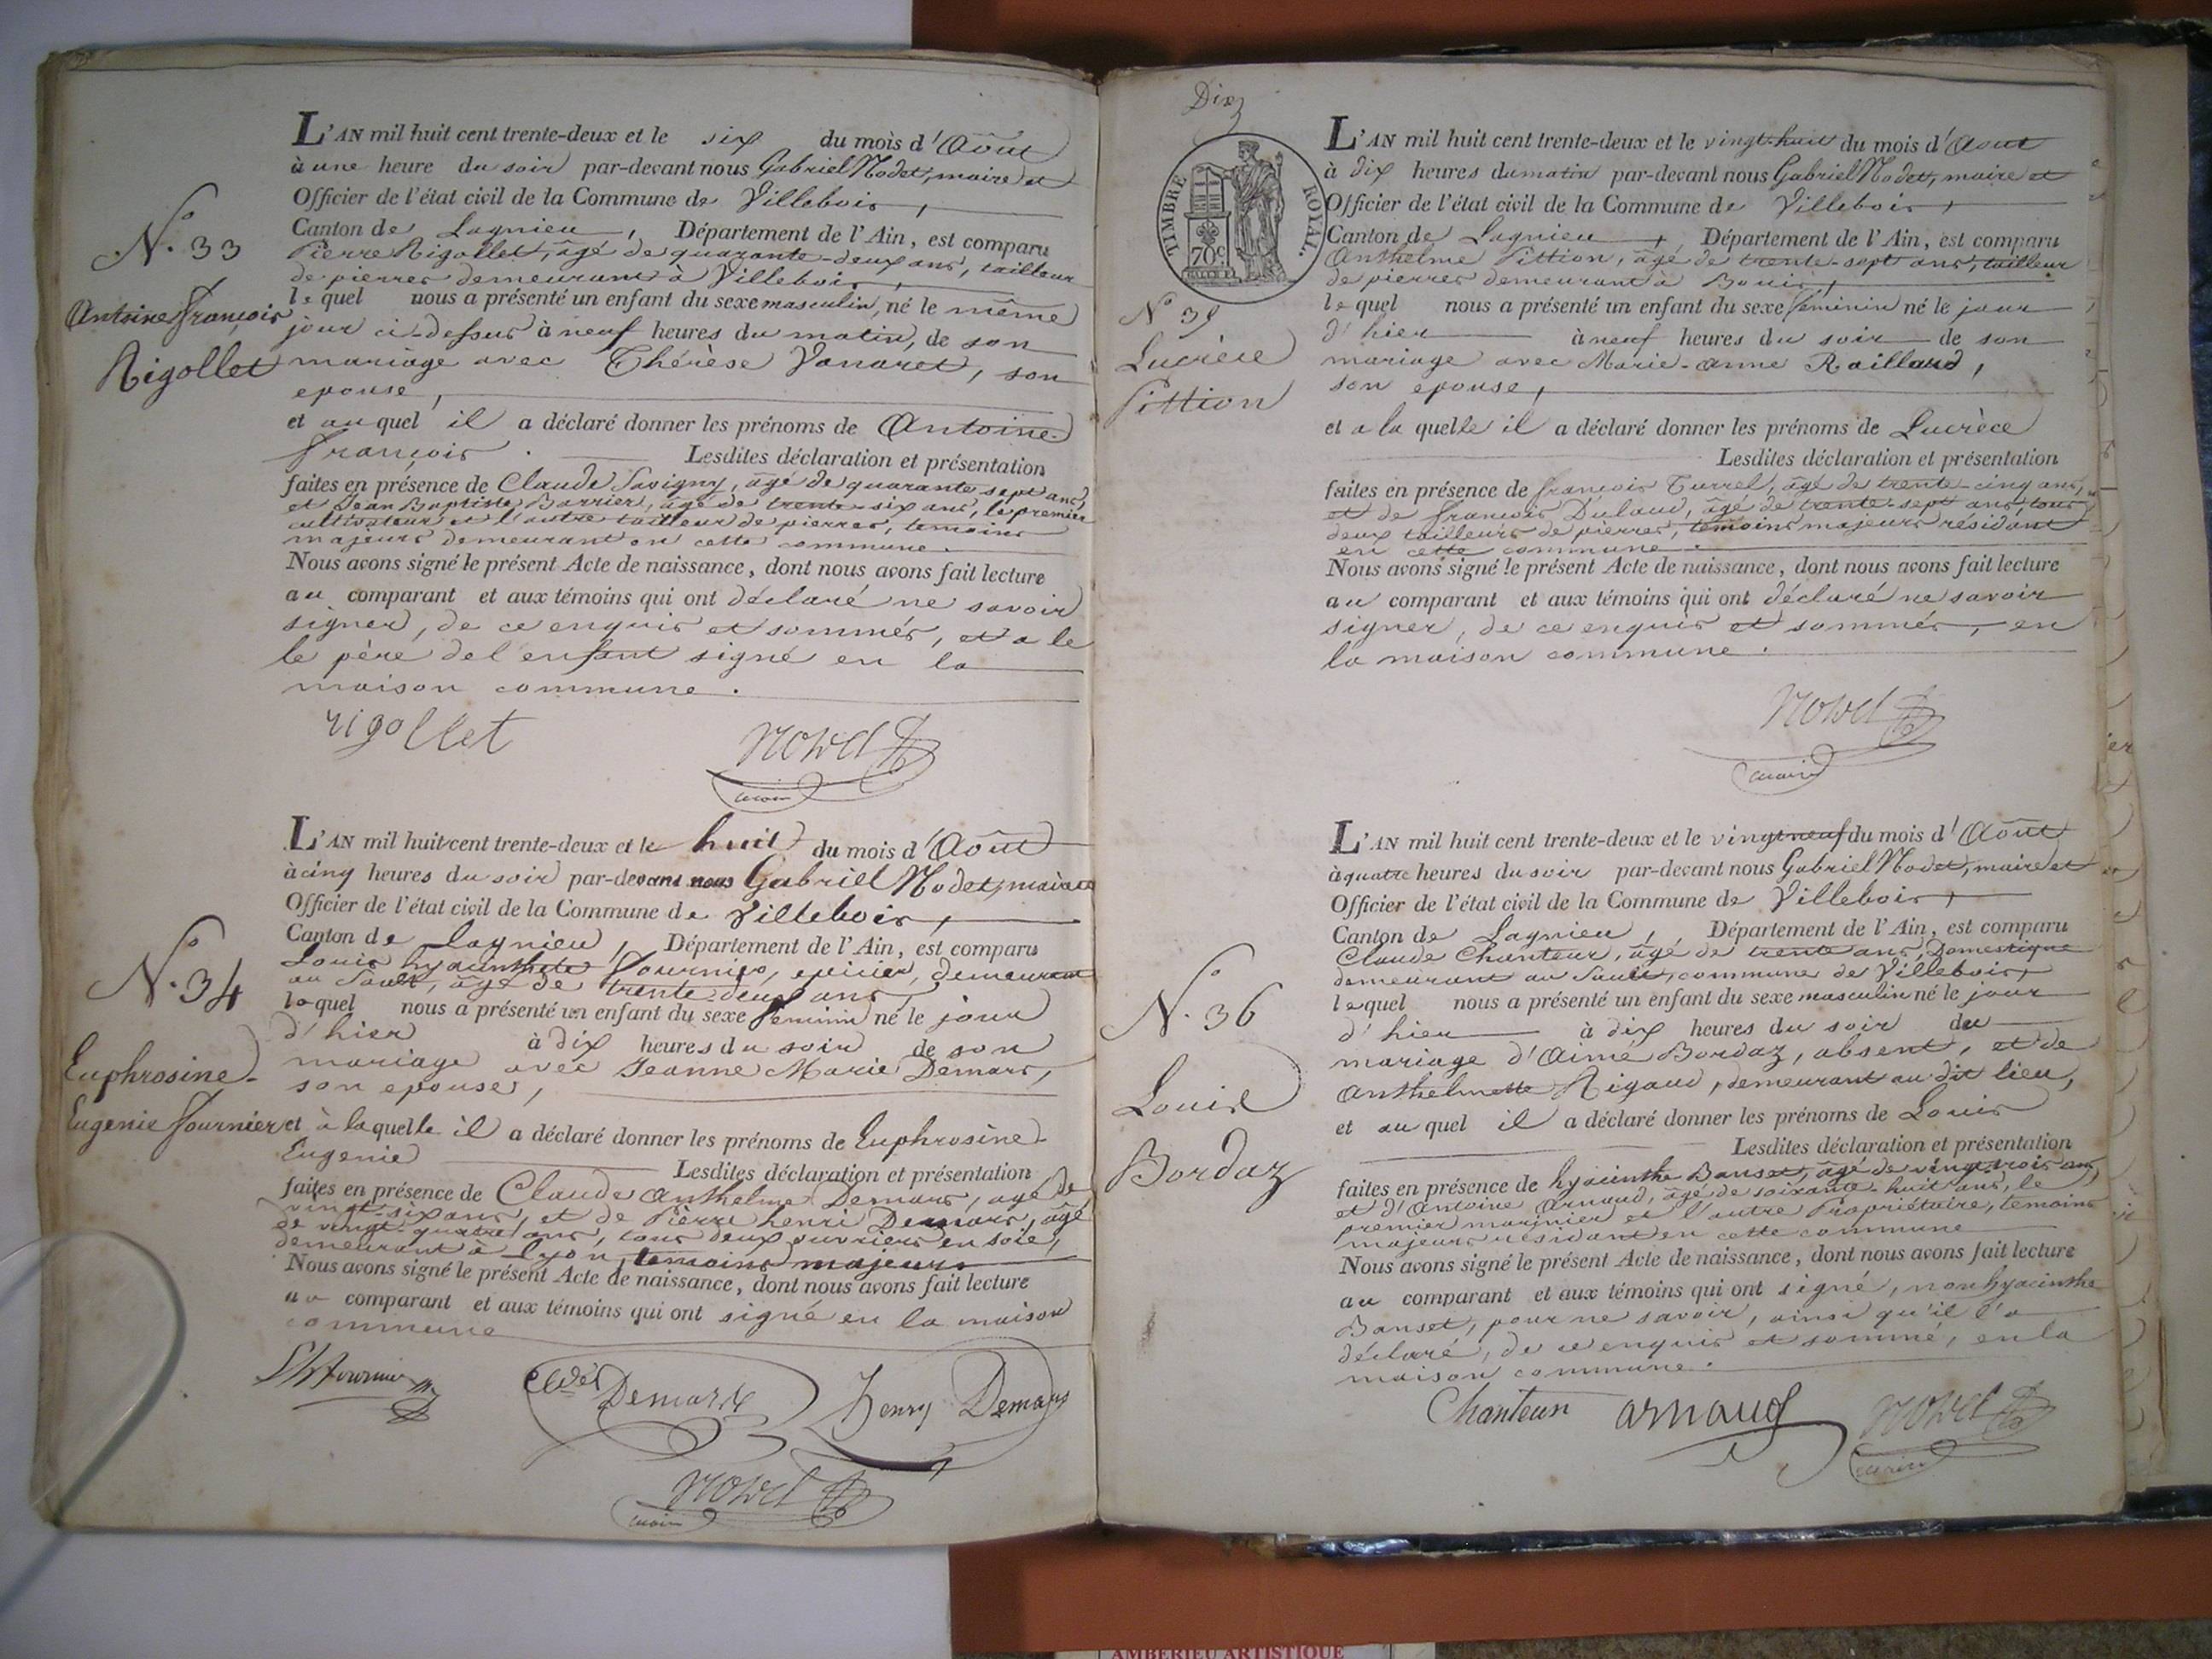 L'AN mil huit cent trente-deux et le six du mois d'Août
à une heure du soir par-devant nous Gabriel Nodet, maire et
Officier de l'état civil de la Commune de Villebois,
Canton de Lagnieu, Département de l'Ain, est comparu
Pierre Rigollet, âgé de quarante-deux ans, tailleur
de pierres demeurant à Villebois,
lequel nous a présenté un enfant du sexe masculin, né le même
jour ci-dessus à neuf heures du matin, de son
mariage avec Thérèse Vanaret, son
epouse,
et auquel il a déclaré donner les prénoms de Antoine-
françois. Lesdites déclaration et présentation
faites en présence de Claude Savigny, âgé de quarante sept ans,
et Jean Baptiste Barrier, âgé de trente-six ans, le premier
cultivateur et l'autre tailleur de pierres, temoins
majeurs demeurant en cette commune.
Nous avons signé le présent Acte de naissance, dont nous avons fait lecture
au comparant et aux témoins qui ont déclaré ne savoir
signer, de ce enquis et sommés, et a le
le père de l'enfant signé en la
maison commune.
rigollet Nodet
maire
N.° 33
Antoine françois
Rigollet
L'AN mil huit cent trente-deux et le huit du mois d'Août
à cinq heures du soir par-devant nous Gabriel Nodet, maire et
Officier de l'état civil de la Commune de Villebois,
Canton de Lagnieu, Département de l'Ain, est comparu
Louis hyacinthe fournier, epicier, demeurant
au Sault, âgé de trente-deux ans,
lequel nous a présenté un enfant du sexe féminin né le jour
d'hier à dix heures du soir de son
mariage avec Jeanne Marie Demars,
son epouse,
et à laquelle il a déclaré donner les prénoms de Euphrosine-
Eugenie Lesdites déclaration et présentation
faites en présence de Claude Anthelme Demars, agé de
vingt-six ans, et de Pierre henri Demars, âgé
de vingt-quatre ans, tous deux ouvriers en soie,
demeurant à Lyon, temoins majeurs
Nous avons signé le présent Acte de naissance, dont nous avons fait lecture
au comparant et aux témoins qui ont signé en la maison
commune
Demars Henry Demars
Nodet
maire
N.° 34
Euphrosine-
Eugenie fournier
Dix
TIMBRE ROYAL.
70c
L'AN mil huit cent trente-deux et le vingt-huit du mois d'Août
à dix heures du matin par-devant nous Gabriel Nodet, maire et
Officier de l'état civil de la Commune de Villebois,
Canton de Lagnieu, Département de l'Ain, est comparu
Anthelme Pittion, âgé de trente-sept ans, tailleur
de pierres demeurant à Bouis,
lequel nous a présenté un enfant du sexe féminin né le jour
d'hier à neuf heures du soir de son
mariage avec Marie-anne Raillaud,
son epouse,
et a laquelle il a déclaré donner les prénoms de Lucrèce
Lesdites déclaration et présentation
faites en présence de françois Turrel, âgé de trente-cinq ans,
et de françois Dulaud, âgé de trente-sept ans, tous
deux tailleurs de pierres, témoins majeurs résidant
en cette commune.
Nous avons signé le présent Acte de naissance, dont nous avons fait lecture
au comparant et aux témoins qui ont déclaré ne savoir
signer, de ce enquis et sommés, en
la maison commune.
Nodet
maire
N° 35
Lucrèce
Pittion
L'AN mil huit cent trente-deux et le vingt neuf du mois d'Août
à quatre heures du soir par-devant nous Gabriel Nodet, maire et
Officier de l'état civil de la Commune de Villebois,
Canton de Lagnieu, Département de l'Ain, est comparu
Claude Chanteur, âgé de trente ans, Domestique
demeurant au Sault, commune de Villebois,
lequel nous a présenté un enfant du sexe masculin né le jour
d'hier à dix heures du soir du
mariage d'Aimé Bordaz, absent, et de
Anthelmette Rigaud, demeurant au dit lieu,
et auquel il a déclaré donner les prénoms de Louis
Lesdites déclaration et présentation
faites en présence de hyacinthe Banset, âgé de vingt trois ans,
et d'Antoine Arnaud, âgé de soixante-huit ans, le
premier marinier et l'autre Propriétaire, temoins
majeurs résidant en cette commune
Nous avons signé le présent Acte de naissance, dont nous avons fait lecture
au comparant et aux témoins qui ont signé, non hyacinthe
Banset, pour ne savoir, ainsi qu'il l'a
déclaré, de ce enquis et sommé, en la
maison commune.
Chanteur arnaud Nodet
maire
N.° 36
Louis
Bordaz
AMBERIEU ARTISTIQUE